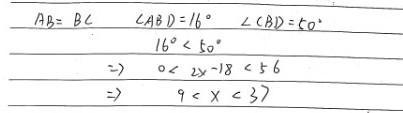 AB = BC ∠ABD = 16° ∠CBD = 50°
16° < 50°
⇒ 0 < 2x - 18 < 56
⇒ 9 < x < 37